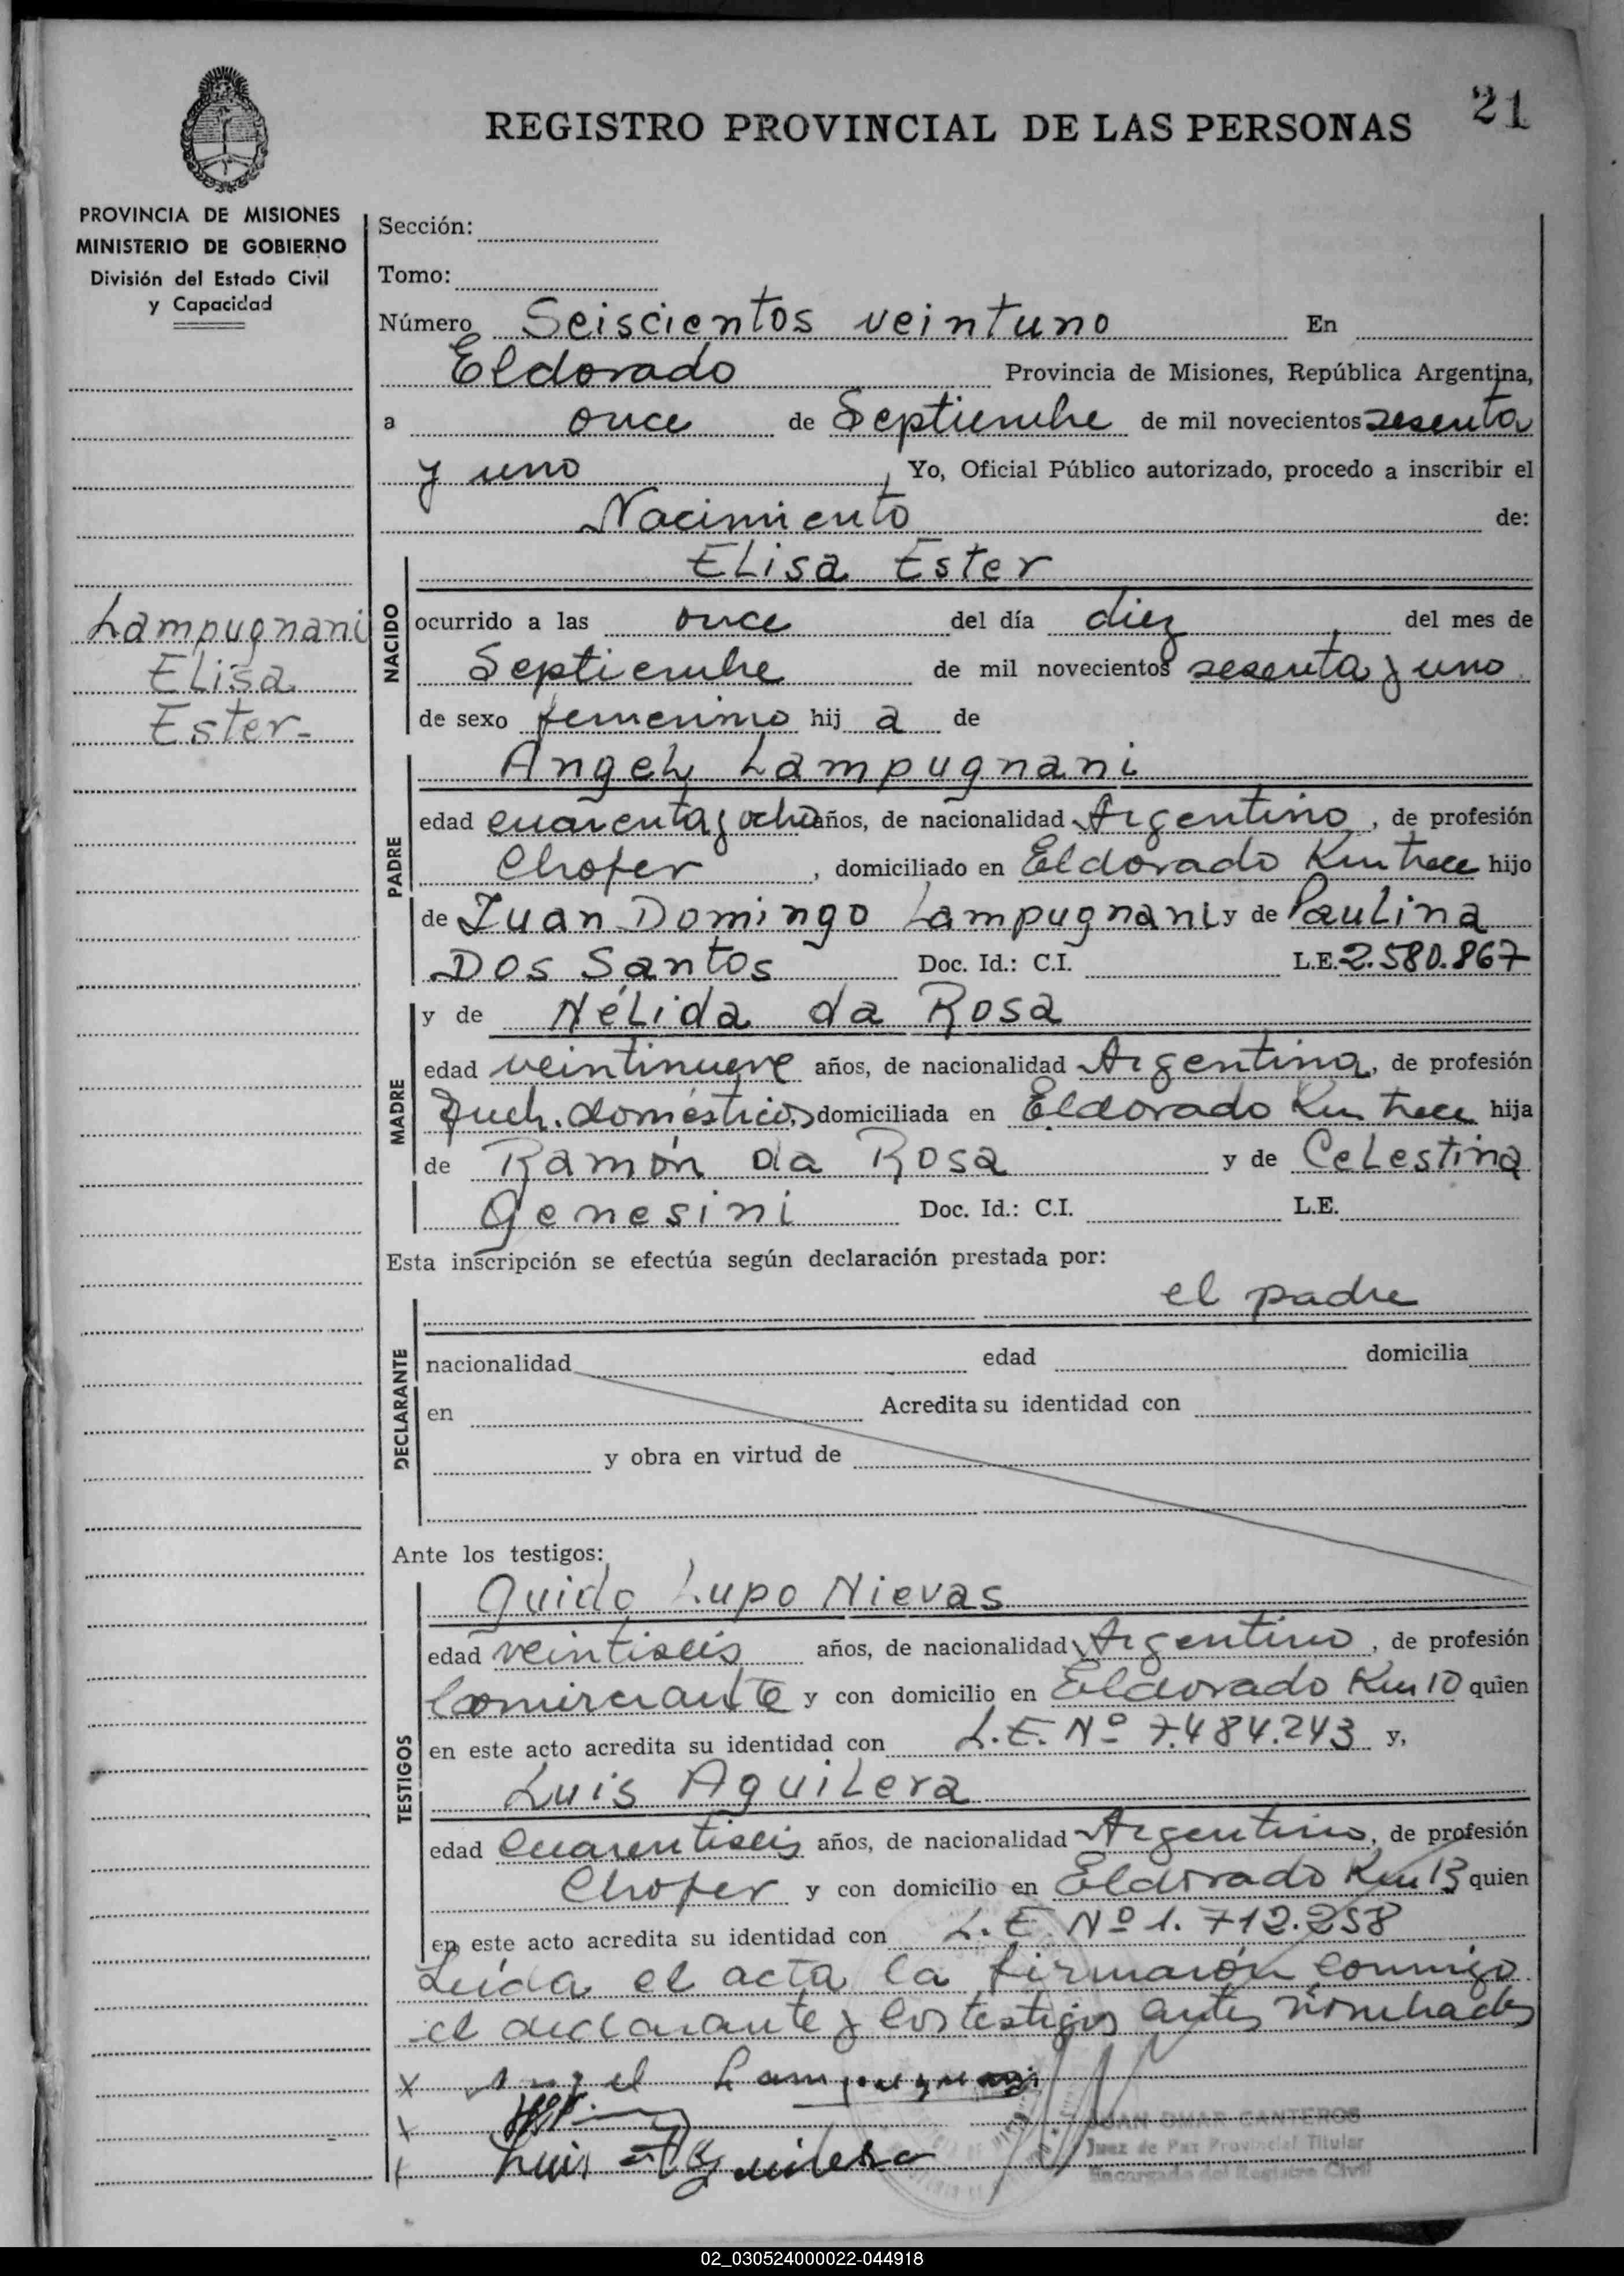 21
REGISTRO PROVINCIAL DE LAS PERSONAS
PROVINCIA DE MISIONES
MINISTERIO DE GOBIERNO
División del Estado Civil
y Capacidad
Lampugnani
Elisa
Ester-
Sección:
Tomo:
Número Seiscientos veintuno En
Eldorado Provincia de Misiones, República Argentina,
a once de Septiembre de mil novecientos sesenta
y uno, Yo, Oficial Público autorizado, procedo a inscribir el
Nacimiento de:
NACIDO
Elisa Ester
ocurrido a las once del día diez del mes de
Septiembre de mil novecientos sesenta y uno
de sexo femenino hij a de
PADRE
Angel Lampugnani
edad cuarenta y ocho años, de nacionalidad Argentino, de profesión
Chofer, domiciliado en Eldorado Km trece hijo
de Juan Domingo Lampugnani y de Paulina
Dos Santos Doc. Id.: C.I. L.E. 2.580.867
MADRE
y de Nélida da Rosa
edad veintinueve años, de nacionalidad Argentina, de profesión
Queh. domésticos domiciliada en Eldorado Km trece hija
de Ramón da Rosa y de Celestina
Genesini Doc. Id.: C.I. L.E.
Esta inscripción se efectúa según declaración prestada por:
DECLARANTE
el padre
nacionalidad edad domicilia
en Acredita su identidad con
y obra en virtud de
Ante los testigos:
TESTIGOS
Guido Lupo Nievas
edad veintiseis años, de nacionalidad Argentino, de profesión
Comerciante y con domicilio en Eldorado Km 10 quien
en este acto acredita su identidad con L.E. Nº 7.484.243 y,
Luis Aguilera
edad Cuarentiseis años, de nacionalidad Argentino, de profesión
Chofer y con domicilio en Eldorado Km 13 quien
en este acto acredita su identidad con L.E. Nº 1.712.258
Leída el acta la firmarón conmigo
el declarante y los testigos antes nombrados
x Angel Lampugnani
x
x Luis Aguilera
JUAN OMAR CANTEROS
Juez de Paz Provincial Titular
Encargado del Registro Civil
02_030524000022-044918